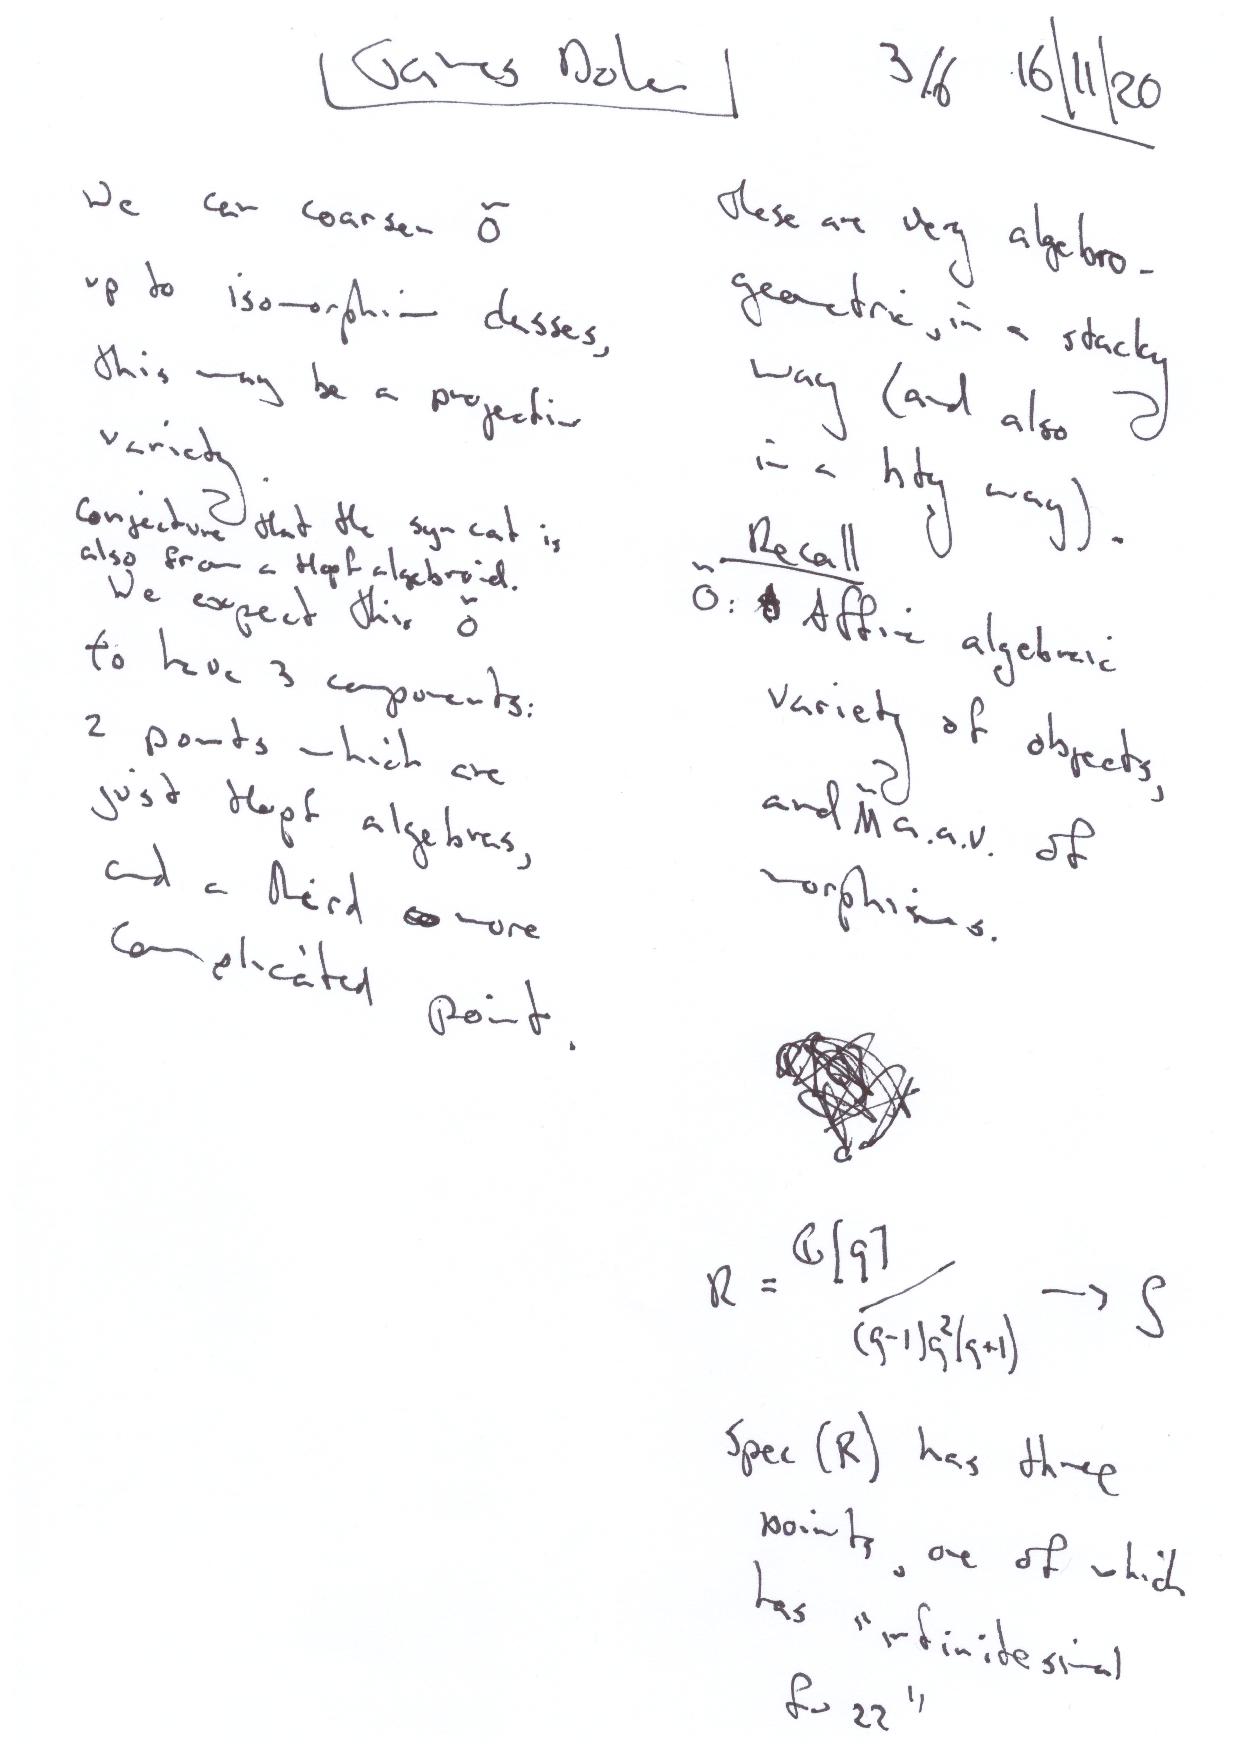 James Dolan 3/6 16/11/20
We can coarsen Õ
up to isomorphism classes,
this may be a projective
variety.
Conjecture that the sym cat is
also from a Hopf algebroid.
We expect this Õ
to have 3 components:
2 points which are
just Hopf algebras,
and a third more
complicated point.
these are very algebro-
geometric, in a stacky
way (and also
in a hty way).
Recall
Õ: Affine algebraic
variety of objects,
and M̃ a.a.v. of
morphisms.
R = ℂ[q] / (q-1)q²(q+1) → S
Spec(R) has three
points, one of which
has "infinitesimal
fuzz"